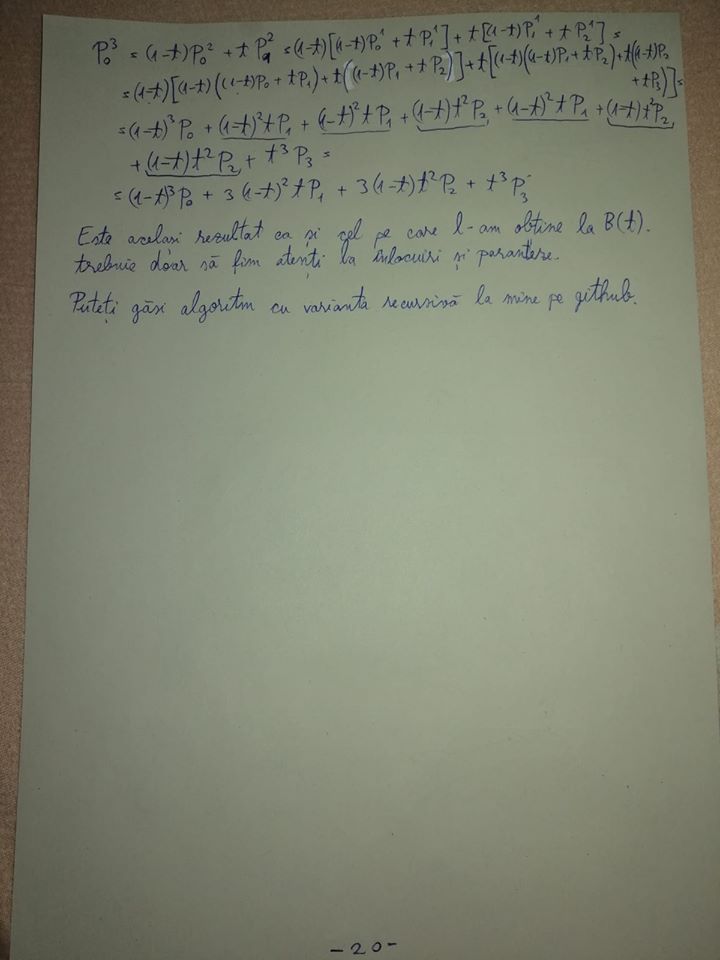 P₀³ = (1-t)P₀² + tP₁² = (1-t)[(1-t)P₀¹ + tP₁¹] + t[(1-t)P₁¹ + tP₂¹] =
= (1-t)[(1-t)((1-t)P₀ + tP₁) + t((1-t)P₁ + tP₂)] + t[(1-t)((1-t)P₁ + tP₂) + t((1-t)P₂
+ tP₃)] =
= (1-t)³P₀ + (1-t)²tP₁ + (1-t)²tP₁ + (1-t)t²P₂ + (1-t)²tP₁ + (1-t)t²P₂
+ (1-t)t²P₂ + t³P₃ =
= (1-t)³P₀ + 3(1-t)²tP₁ + 3(1-t)t²P₂ + t³P₃
Este același rezultat ca și cel pe care l-am obține la B(t).
trebuie doar să fim atenți la înlocuiri și paranteze.
Puteți găsi algoritm cu varianta recursivă la mine pe github.
-20-